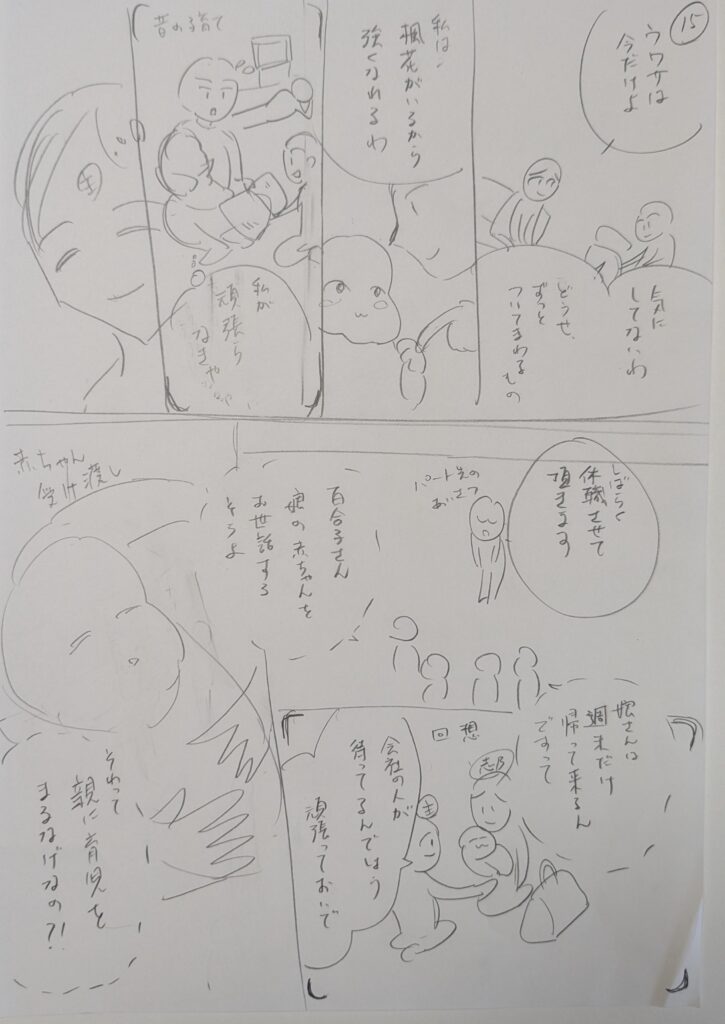 15
ウワサは
今だけよ
気に
してないわ
どうせ、
ずっと
ついてまわるもの
私は、
楓花がいるから
強くなれるわ
昔の子育て
私が
頑張ら
なきゃ
主
しばらく
休職させて
頂きます
パート先の
あいさつ
百合子さん
娘の赤ちゃんを
お世話する
そうよ
娘さんは
週末だけ
帰って来るん
ですって
回想
会社の人が
待ってるんでしょう
頑張っておいで
主
赤ちゃん
受け渡し
それって
親に育児を
まるなげなの?!